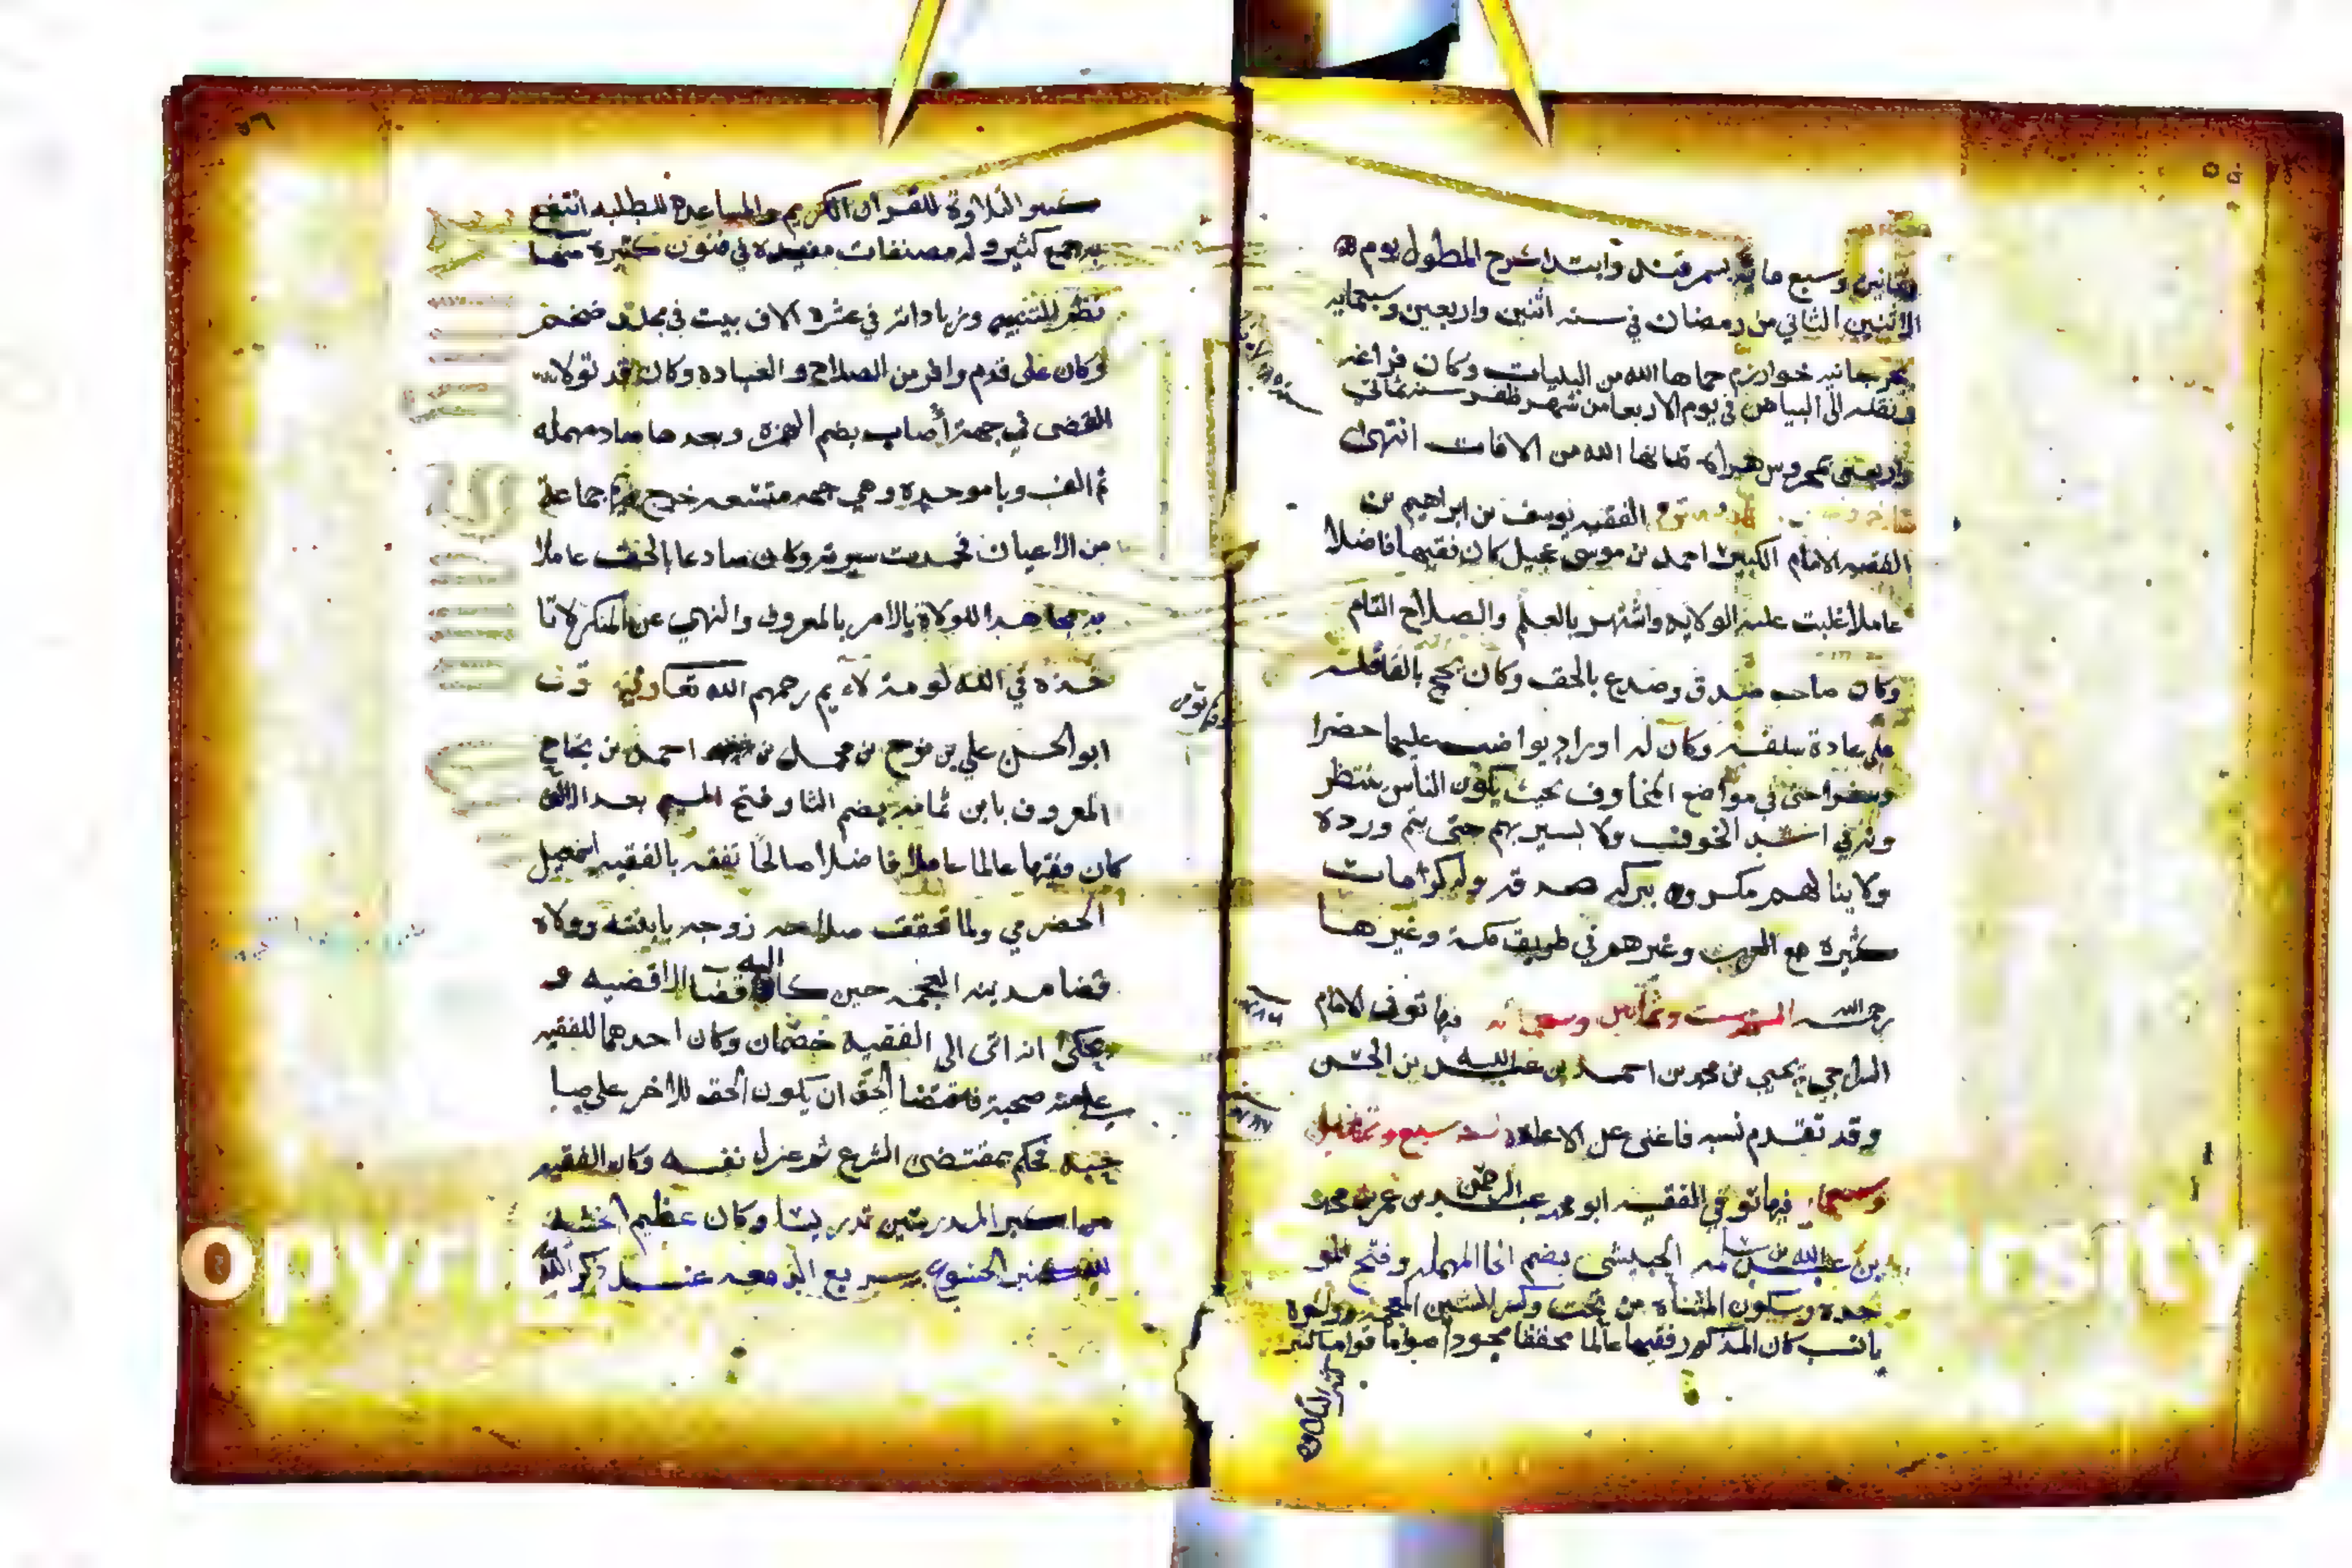 وثمانين وسبع مائة بسمرقند وابتدا شرح المطول يوم
الاثنين الثاني من رمضان في سنه اثنين واربعين وسبعمايه
بجرجانيه خوارزم حماها الله من البليات وكان فراغه
ونقله الى البياض في يوم الاربعا من شهر صفر سنه ثماني
واربعين بمحروس هراه حماها الله من الافات انتهى
الفقيه يوسف بن ابراهيم بن
الفقيه الامام الكبير احمد بن موسى عجيل كان فقيها فاضلا
عاملا غلبت عليه الولايه واشتهر بالعلم والصلاح التام
وكان صاحب صدق وصدع بالحق وكان يحج بالقافله
على عادة سلفه وكان له اوراد يواضب عليها حضرا
وسفرا حتى في مواضع المخاوف بحيث يكون الناس ينتظر
ونه في اشد الخوف ولا يسير بهم حتى يتم ورده
ولا ينالهم مكروه ببركه صدقه وله كرامات
كثيره مع العرب وغيرهم في طريق مكة وغيرها
رحمه الله سنه ست وثمانين وسبعمائه فيها توفى الامام
السراجي يحيى بن محمد بن احمد بن عبد الله بن الحسن
وقد تقدم نسبه فاغنى عن الاعاده سنه سبع وثمانين
وسبعمايه فيها توفي الفقيه ابو محمد عبد الرحمن بن عمر بن محمد
بن عبد الله بن سلمه الحبيشي بضم الحا المهمله وفتح المو
حده وسكون المثناه من تحت وكسر الشين المعجمه
يا نسب كان المذكور فقيها عالما محققا مجودا صواما قواما كثير
كثير التلاوة
كثير التلاوة للقران الكريم والمساعدة للطلبه انتفع
به جمع كثير وله مصنفات مفيده في فنون كثيره منها
نظم للتنبيه وزياداته في عشره الاف بيت في مجلد ضخم
وكان على قدم وافر من الصلاح والعباده وكان قد تولا
القضى في جهة أصاب بضم الهمزه وبعدها صاد مهمله
ثم الف وبا موحده وهي جهه متسعه خرج منها جماعة
من الاعيان فحمدت سيرته وكان صادعا بالحق عاملا
به مجاهدا للولاة بالامر بالمعروف والنهي عن المنكر لا تا
خذه في الله لومة لايم رحمهم الله تعا وفيها توف
ابو الحسن علي بن نوح بن محمد بن احمد بن نجاح
المعروف بابن ثمامه بضم الثا وفتح الميم بعد الالف
كان فقيها عالما عاملا فاضلا صالحا تفقه بالفقيه اسمعيل
الحضرمي ولما تحققت صلاحه زوجه بابنته وولاه
قضا مدينه القحمه حين كان اليه قضا الاقضيه و
يحكى انه اتى الى الفقيه خصمان وكان احدهما للفقيه
عليه صحبة فاقتضا الحق ان يكون الحق للاخر على صا
حبه فحكم بمقتضى الشرع ثم عزل نفسه وكان الفقيه
من اكبر المدرسين تدريسا وكان عظيم الخشية
لله كثير الخشوع سريع الدمعه عند ذكر الله